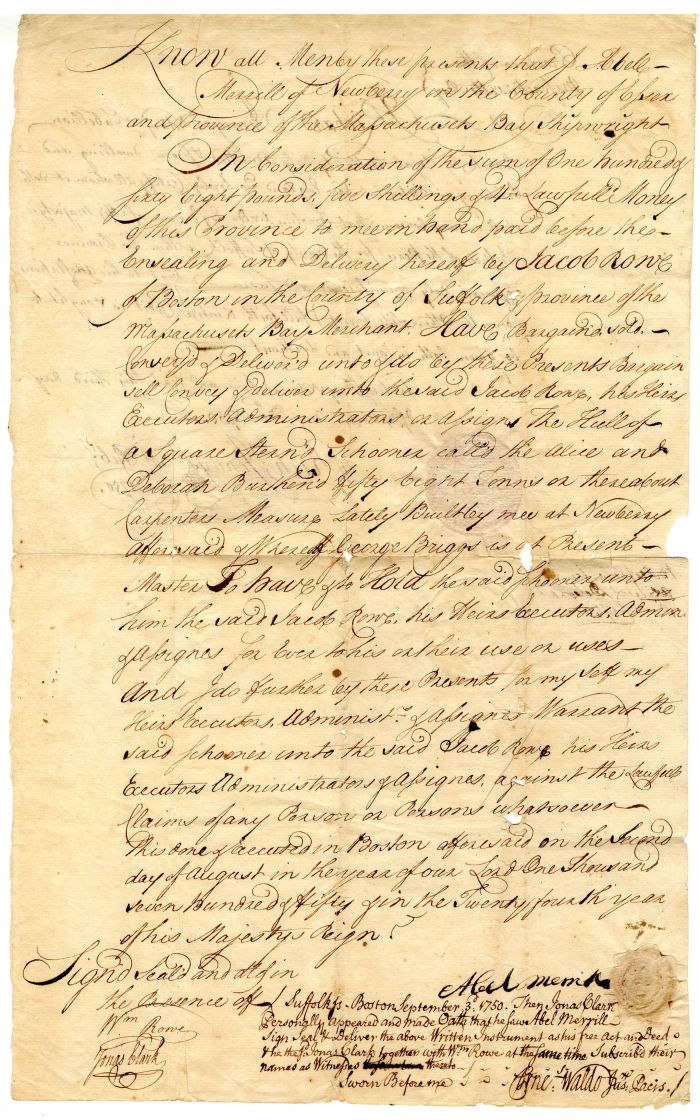 Know all Men by these presents that I Abell
Merrill of Newberry in the County of Essex
and province of the Massachusets Bay Shipwright
In Consideration of the sum of One hundred &
sixty Eight pounds, five Shillings & Lawfull Money
of this Province to mee in hand paid before the
Ensealing and Delivery hereof by Jacob Rowe
of Boston in the County of Suffolk & province of the
Massachusets Bay Merchant, Have Bargaind, sold
Convey'd & Deliver'd unto & do by these Presents Bargain
sell Convey & deliver unto the said Jacob Rowe, his Heirs
Executors, Administrators or Assigns The Hull of
a Square Stern'd Schooner call'd the Alice and
Deborah Burthen'd fifty Eight Tonns or thereabout
Carpenters Measure Lately Built by mee at Newberry
afforesaid & Whereoff George Briggs is at Present
Master To have & to Hold the said schooner unto
him the said Jacob Rowe, his Heirs Executors, Admon
& Assignes for Ever to his or their use or uses
And I do further by these Presents for my self my
Heirs Executors, Administrs & Assignes Warrant the
said schooner unto the said Jacob Rowe his Heirs
Executors Administrators & Assignes, against the Lawfull
Claims of any Person or Persons whatsoever
This done & executed in Boston afforesaid on the Second
day of August in the year of our Lord One Thousand
seven Hundred & fifty & in the Twenty fourth year
of his Majestys Reign
Sign'd Seal'd and in
the Presence off
Abel Merrill
Wm Rowe
Jonas Clark
Suffolk ss. Boston September 3d 1750. Then Jonas Clark
Personally appeared and made Oath that he saw Abel Merrill
Sign Seal & Deliver the above Written Instrument as his free Act and Deed
& he the sd Jonas Clark together with Wm Rowe at the same time Subscrib'd their
names as Witnesses thereto
Sworn Before me Waldo Jus. Pacis.